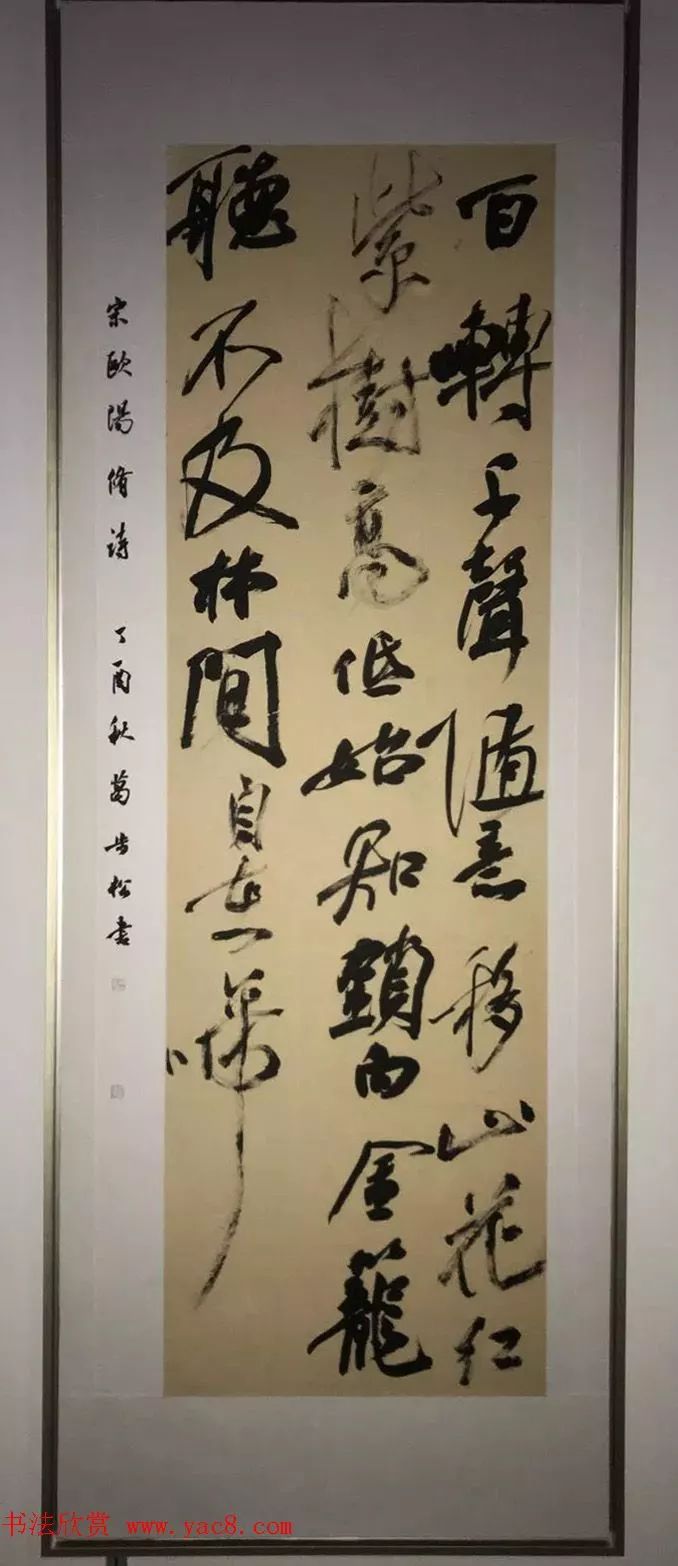 百囀千聲隨意移山花红
紫樹高低始知鎖向金籠
聽不及林間自在啼
宋歐陽脩诗 丁酉秋葛松书
书法欣赏 www.yac8.com